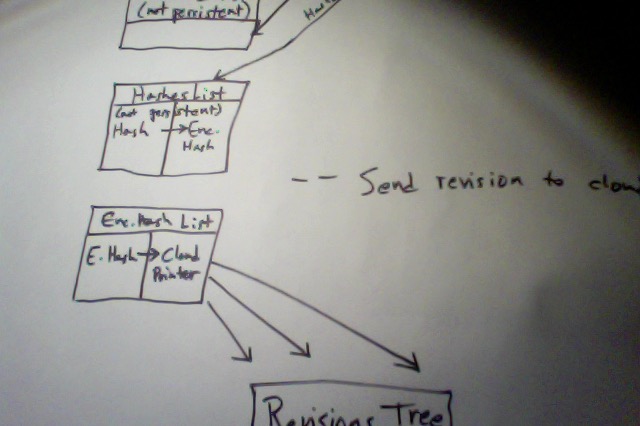 (not persistent)
Hashes List
(not persistent)
Hash → Enc.
Hash
-- Send revision to
Enc. Hash List
E. Hash → Cloud
Pointer
Revisions Tree